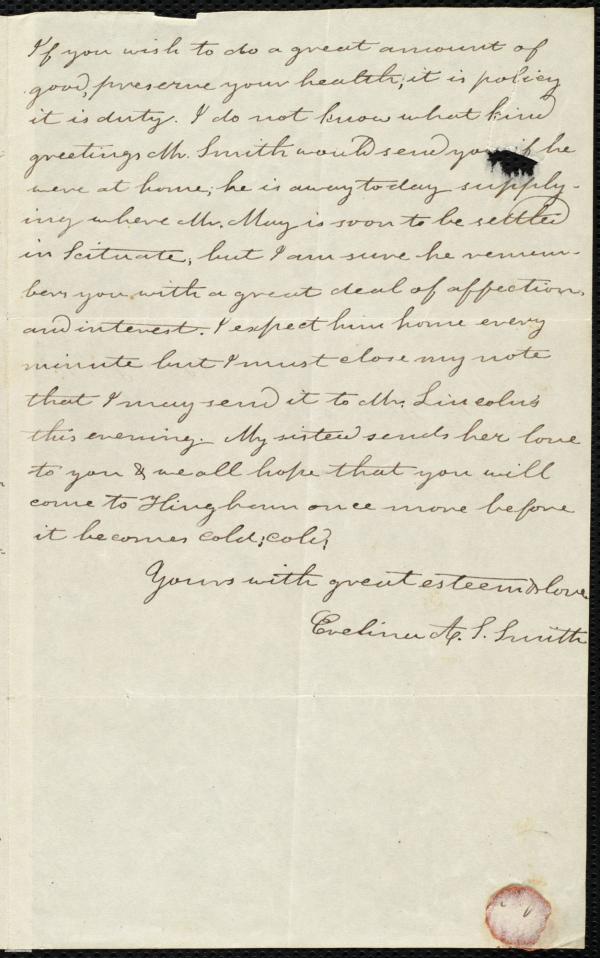 If you wish to do a great amount of
good, preserve your health; it is policy
it is duty. I do not know what kind
greetings Mr. Smith would send you if he
were at home; he is away to day supply-
ing where Mr. May is soon to be settled
in Scituate; but I am sure he remem-
bers you with a great deal of affection,
and interest. I expect him home every
minute but I must close my note
that I may send it to Mr. Lincoln's
this evening. My sister sends her love
to you & we all hope that you will
come to Hingham once more before
it becomes cold; cold;
Yours with great esteem & love
Evelina A. S. Smith